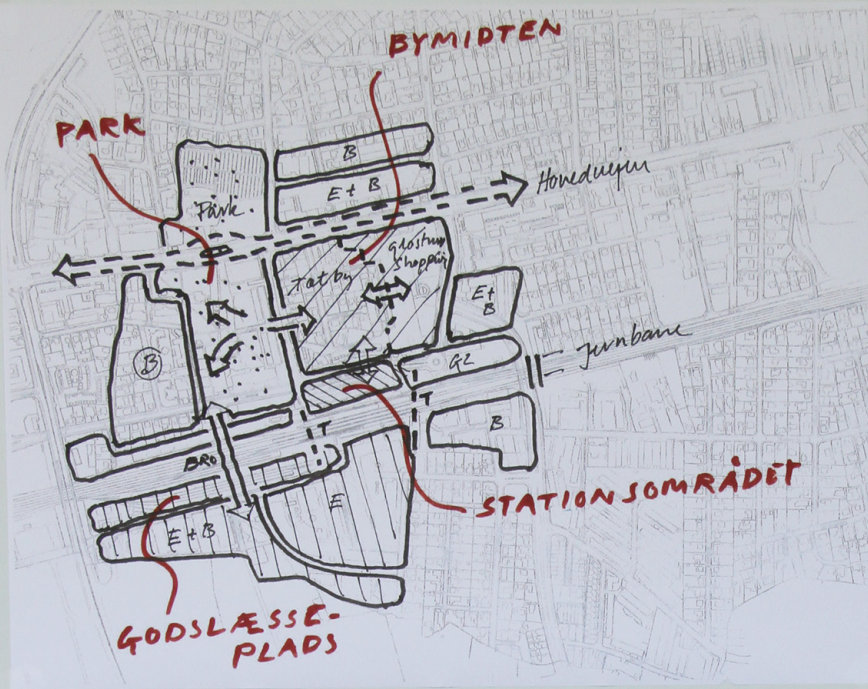 BYMIDTEN
PARK
B
E + B
Hovedvejen
Park
Glostrup
Shopping
Tæt by
E +
B
B
G2
Jernbane
T
T
B
BRO
E
STATIONSOMRÅDET
E + B
GODSLÆSSE-
PLADS